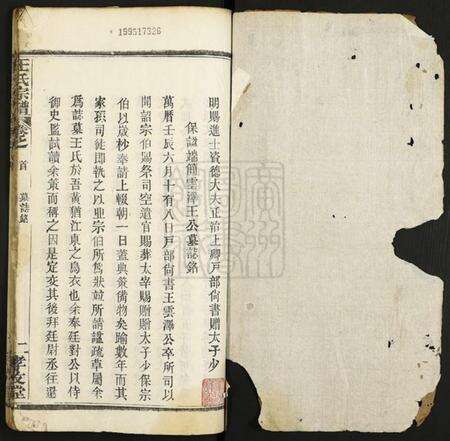 199517326
王氏宗譜
卷之
首
墓誌銘
一
孝友堂
明賜進士資德大夫正治上卿戸部尚書贈太子少
保諡端簡雲澤王公墓誌銘
萬曆壬辰六月十有八日戸部尚書王雲澤公卒所司以
聞詔宗伯賜祭司空遣官賜葬太宰賜贈太子少保宗
伯以歲杪奉請上輟朝一日蓋典策備物矣踰數年而其
家孫司徒即執之以亞宗伯所爲狀竝所請謚疏草屬余
爲誌墓王氏於吾黃猶江東之烏衣也余奉廷對公以侍
御史監試讀余策而稱之因是定交其後拜廷尉丞往還